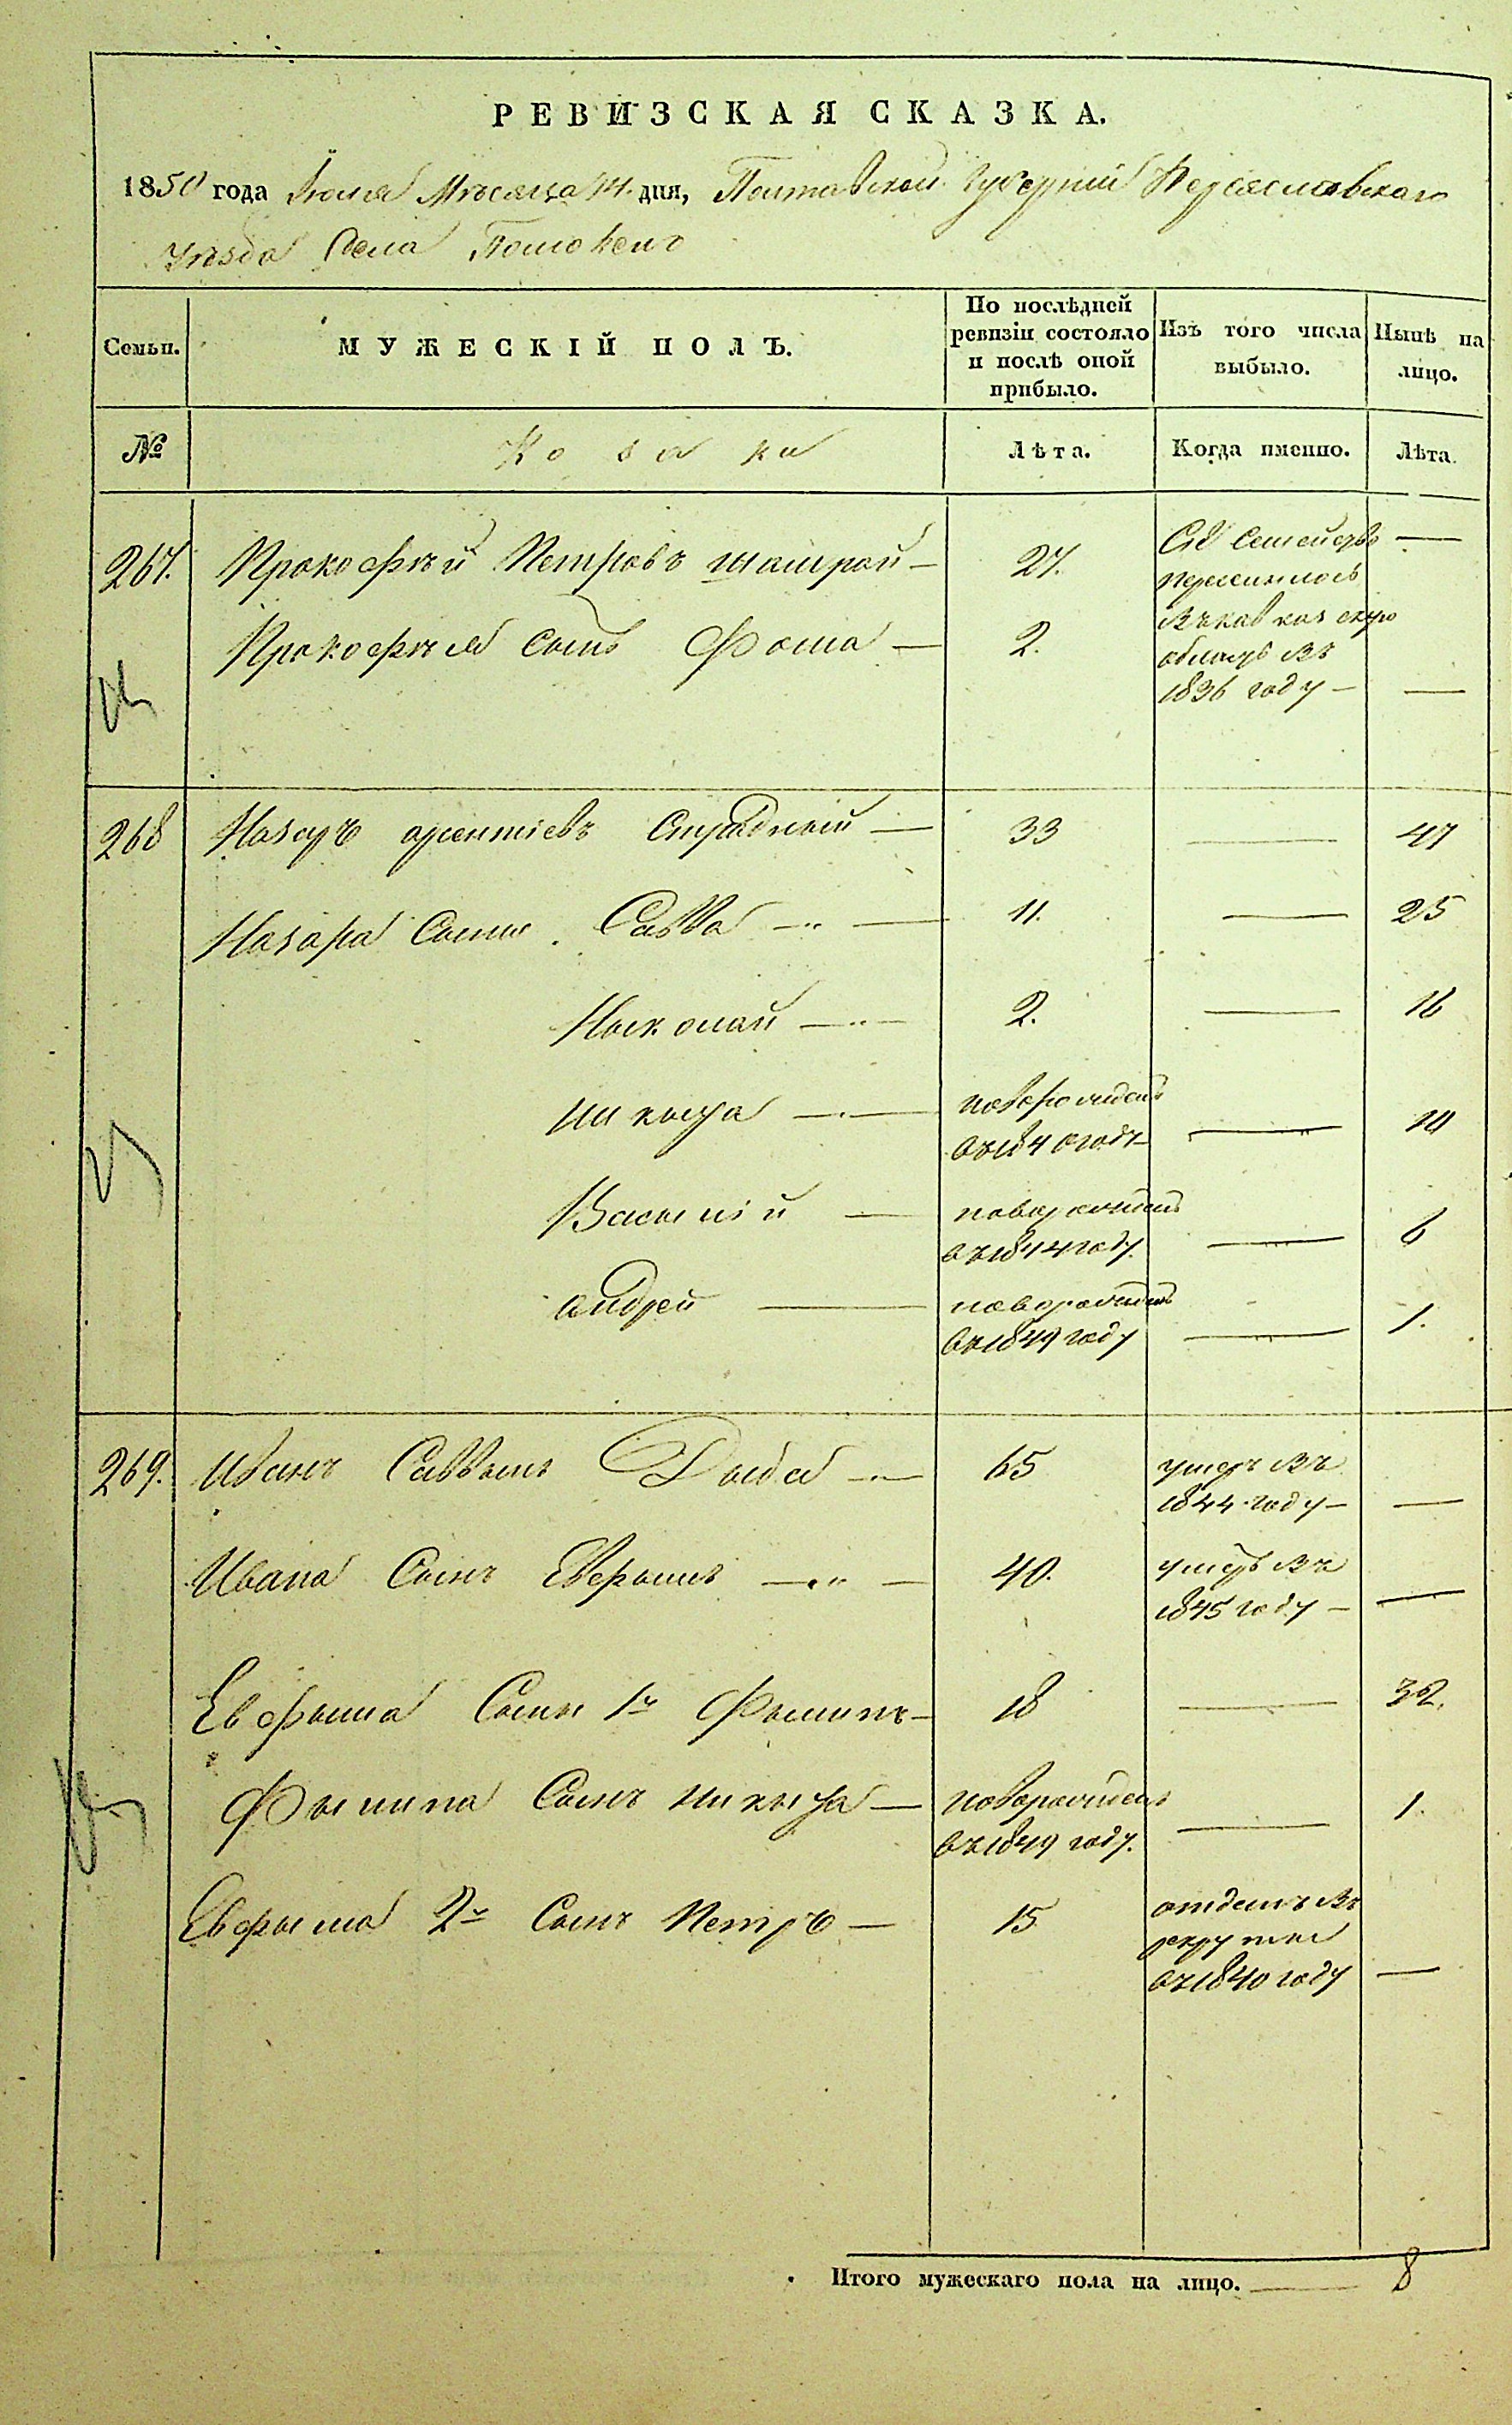 РЕВИЗСКАЯ СКАЗКА.
1850 года Июля Мѣсяца 14 дня, Полтавской Губерніи Переяславскаго
Уѣзда Села Помокель
Семьи. МУЖЕСКІЙ ПОЛЪ. По послѣдней ревизіи состояло и послѣ оной прибыло. Изъ того числа выбыло. Нынѣ на лицо.
№ Козаки Лѣта. Когда именно. Лѣта.
267. Прокофѣй Петровъ — 27. Съ Семействомъ —
переселилось
Прокофѣя сынъ Фома — 2. въ кавказскую
область въ
1836 году — —
268 Назаръ Страдный — 33 — 47
Назара Сыны Савва — 11. — 25
Николай — 2. — 16
Никита — новорожденъ
въ 1840 году — 10
Василій — новорожденъ
въ 1844 году. — 6
Андрей — новорожденъ
въ 1849 году — 1.
269. Иванъ Саввинъ Дыба — 65 умеръ въ
1844 году — —
Ивана Сынъ Ефримъ — 40. умеръ въ
1845 году — —
Ефрима Сыны 1й Филипъ — 18 — 32.
Филипа Сынъ Никита — новорожденъ
въ 1849 году. — 1.
Ефрима 2й Сынъ Петръ — 15 отданъ въ
рекруты
въ 1840 году —
Итого мужескаго пола на лицо. — 8